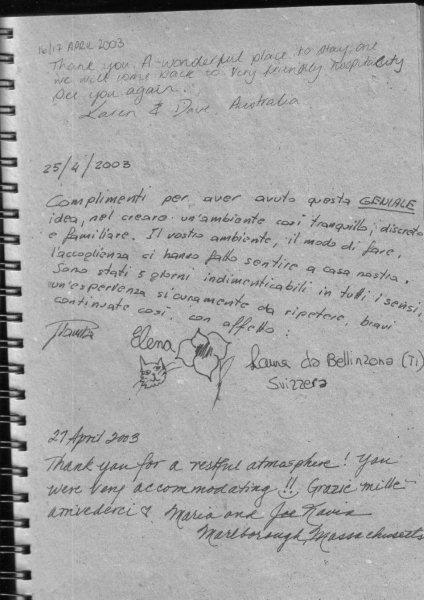 16/17 APRIL 2003
Thank you. A wonderful place to stay, one
we will come back to. Very friendly hospitality
See you again.
Karen & Dave Australia
25/4/2003
Complimenti per aver avuto questa GENIALE
idea, nel creare un'ambiente così tranquillo, discreto
e familiare. Il vostro ambiente, il modo di fare,
l'accoglienza ci hanno fatto sentire a casa nostra.
Sono stati 5 giorni indimenticabili in tutti i sensi,
un'esperienza sicuramente da ripetere, bravi
continuate così. con affetto:
Elena
Laura da Bellinzona (TI)
Svizzera
27 April 2003
Thank you for a restful atmosphere! You
were very accommodating!! Grazie mille
arrivederci Maria and Joe
Marlborough, Massachusetts